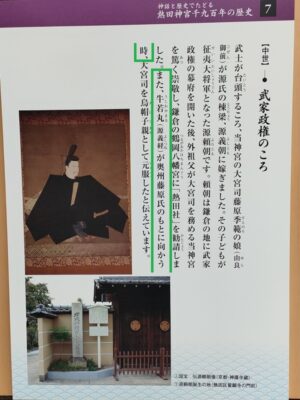 神話と歴史でたどる
熱田神宮千九百年の歴史
7
【中世】
武家政権のころ
武士が台頭するころ、当神宮の大宮司藤原季範の娘（由良
御前）が源氏の棟梁、源義朝に嫁ぎました。その子どもが
征夷大将軍となった源頼朝です。頼朝は鎌倉の地に武家
政権の幕府を開いた後、外祖父が大宮司を務める当神宮
を篤く崇敬し、鎌倉の鶴岡八幡宮に「熱田社」を勧請しま
した。また、牛若丸（源義経）が奥州藤原氏のもとに向かう
時、大宮司を烏帽子親として元服したと伝えています。
①国宝　伝源頼朝像（京都・神護寺蔵）
②源頼朝誕生の地（熱田区誓願寺の門前）